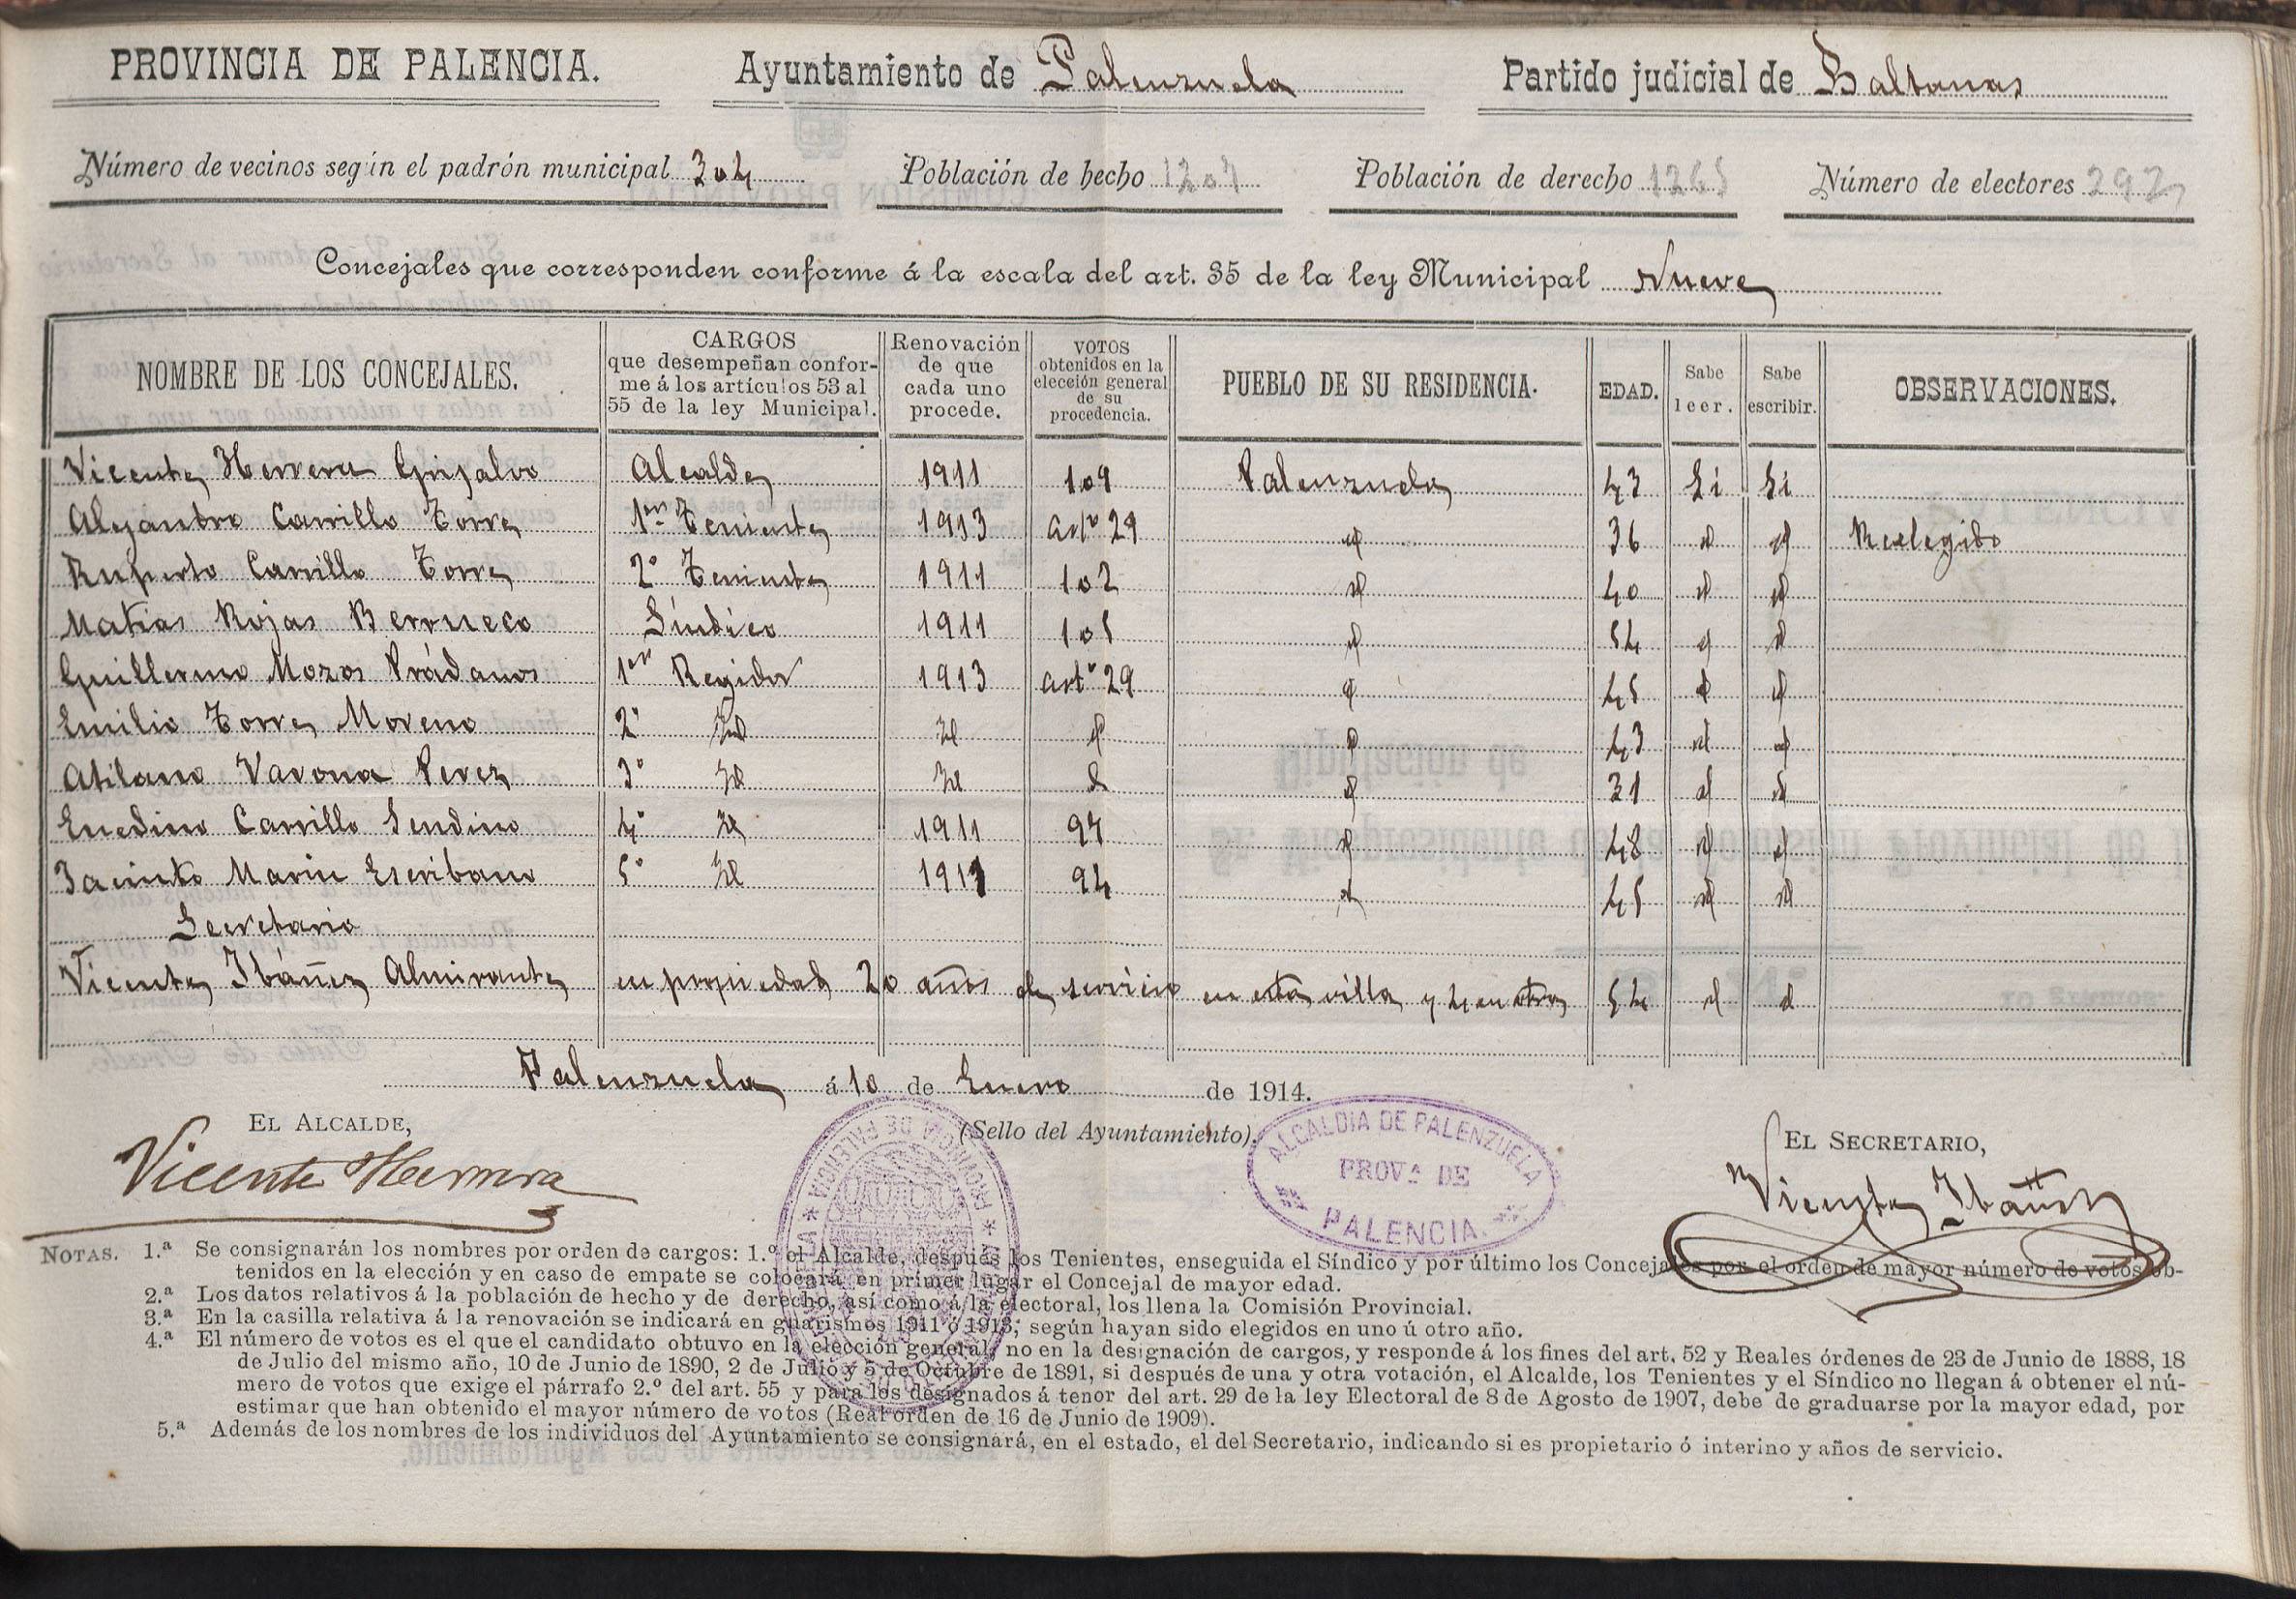 PROVINCIA DE PALENCIA. Ayuntamiento de Palenzuela Partido judicial de Baltanas
Número de vecinos según el padrón municipal 304 Población de hecho 1207 Población de derecho 1265 Número de electores 292
Concejales que corresponden conforme á la escala del art. 35 de la ley Municipal Nueve
NOMBRE DE LOS CONCEJALES. CARGOS que desempeñan conforme á los artículos 53 al 55 de la ley Municipal. Renovación de que cada uno procede. VOTOS obtenidos en la elección general de su procedencia. PUEBLO DE SU RESIDENCIA. EDAD. Sabe leer. Sabe escribir. OBSERVACIONES.
Vicente Herrera Grijalvo Alcalde 1911 109 Palenzuela 43 Si Si
Alejandro Carrillo Torre 1er Teniente 1913 artº 29 id 36 id id Reelegido
Ruperto Carrillo Torre 2º Teniente 1911 102 id 40 id id
Matias Rojas Berrueco Síndico 1911 105 id 54 id id
Guillermo Mozos Prádanos 1er Regidor 1913 artº 29 id 45 id id
Emilio Torre Moreno 2º Id Id id id 43 id id
Atilano Varona Perez 3º Id Id id id 31 id id
Enedino Carrillo Sendino 4º Id 1911 97 id 48 id id
Jacinto Marin Escribano 5º Id 1911 94 id 45 id id
Secretario
Vicente Ibáñez Almirante en propiedad 20 años de servicio en esta villa y 4 en otra 54 id id
Palenzuela á 10 de Enero de 1914.
EL ALCALDE, (Sello del Ayuntamiento). EL SECRETARIO,
Vicente Herrera
Vicente Ibáñez
ALCALDIA DE PALENZUELA
PROVª DE
PALENCIA.
NOTAS. 1.ª Se consignarán los nombres por orden de cargos: 1.º el Alcalde, después los Tenientes, enseguida el Síndico y por último los Concejales por el orden de mayor número de votos ob-
tenidos en la elección y en caso de empate se colocará en primer lugar el Concejal de mayor edad.
2.ª Los datos relativos á la población de hecho y de derecho, así como á la electoral, los llena la Comisión Provincial.
3.ª En la casilla relativa á la renovación se indicará en guarismos 1911 ó 1913, según hayan sido elegidos en uno ú otro año.
4.ª El número de votos es el que el candidato obtuvo en la elección general, no en la designación de cargos, y responde á los fines del art. 52 y Reales órdenes de 23 de Junio de 1888, 18
de Julio del mismo año, 10 de Junio de 1890, 2 de Julio y 5 de Octubre de 1891, si después de una y otra votación, el Alcalde, los Tenientes y el Síndico no llegan á obtener el nú-
mero de votos que exige el párrafo 2.º del art. 55 y para los designados á tenor del art. 29 de la ley Electoral de 8 de Agosto de 1907, debe de graduarse por la mayor edad, por
estimar que han obtenido el mayor número de votos (Real orden de 16 de Junio de 1909).
5.ª Además de los nombres de los individuos del Ayuntamiento se consignará, en el estado, el del Secretario, indicando si es propietario ó interino y años de servicio.